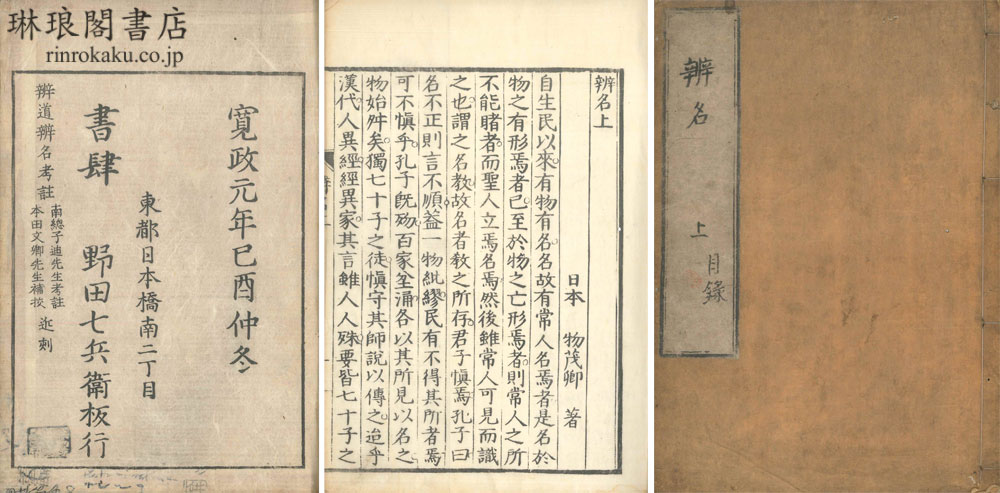 琳琅閣書店
rinrokaku.co.jp
寬政元年己酉仲冬
東都日本橋南二丁目
書肆 野田七兵衛板行
辨道辨名考註 南總子迪先生考註 本田文卿先生補挍 近刻
辨名上
日本 物茂卿 著
自生民以來有物有名名故有常人名焉者是名於
物之有形焉者已至於物之亡形焉者則常人之所
不能睹者而聖人立焉名焉然後雖常人可見而識
之也謂之名教故名者教之所存君子慎焉孔子曰
名不正則言不順蓋一物紕繆民有不得其所者焉
可不慎乎孔子既歿百家坌涌各以其所見以名之
物始舛矣獨七十子之徒慎守其師說以傳之迨乎
漢代人異經經異家其言雖人人殊要皆七十子之
辨名 上 目錄